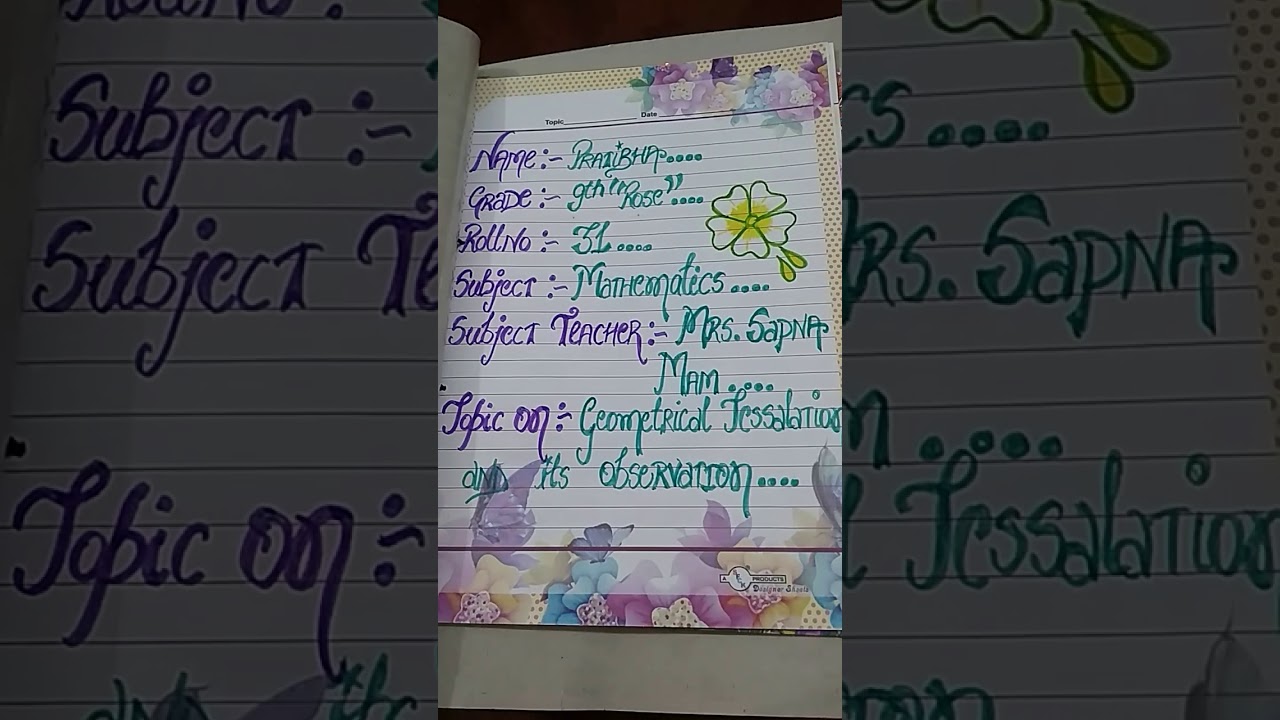 Topic Date
Name:- Pratibha....
Grade:- 9th "Rose"....
Roll No:- 31....
Subject:- Mathematics....
Subject Teacher:- Mrs. Sapna
Mam....
Topic on:- Geometrical Tessalation
and its observation....
A PRODUCTS
Designer Sheets